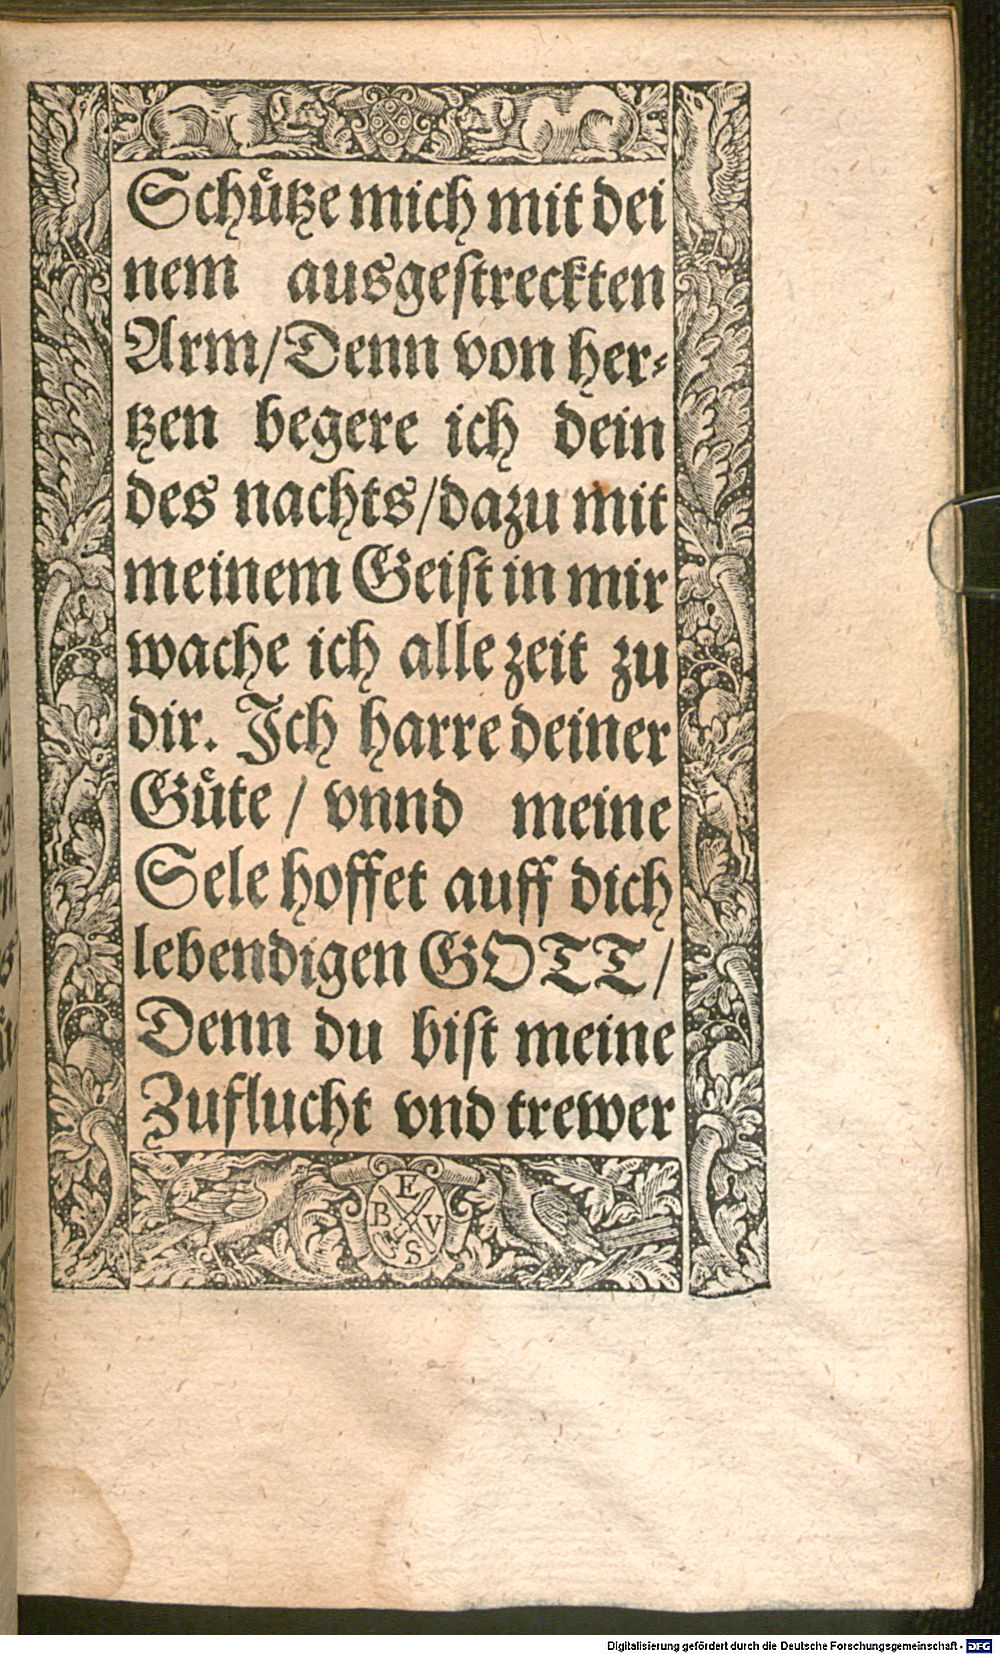 Schuͤtze mich mit dei
nem ausgestreckten
Arm/Denn von her⸗
tzen begere ich dein
des nachts/dazu mit
meinem Geist in mir
wache ich alle zeit zu
dir. Jch harre deiner
Guͤte / vnnd meine
Sele hoffet auff dich
lebendigen GOTT/
Denn du bist meine
Zuflucht vnd trewer
E
B V
S
Digitalisierung gefördert durch die Deutsche Forschungsgemeinschaft - DFG